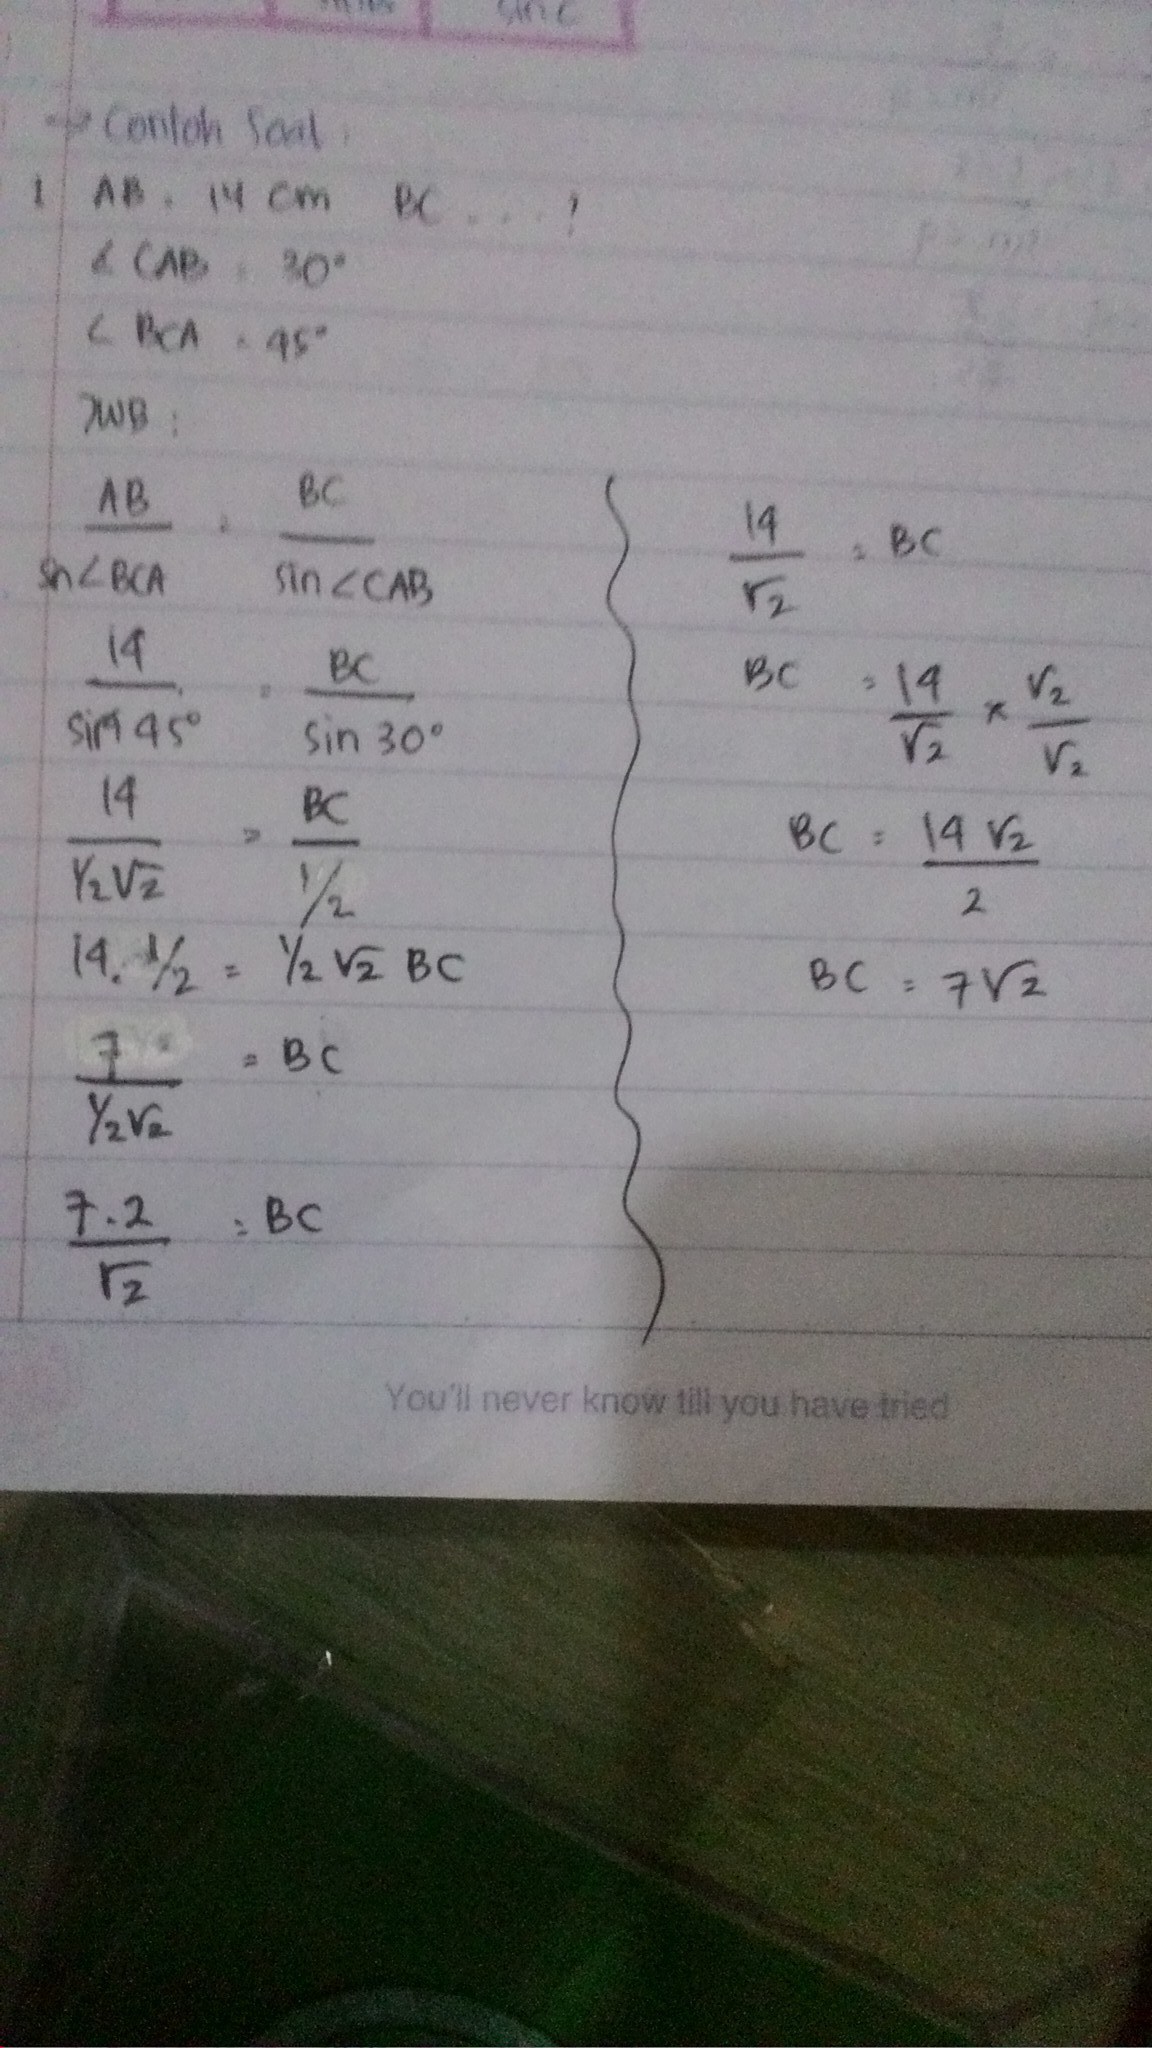 sin C
→ Contoh Soal :
1 AB = 14 cm BC . . . ?
∠ CAB = 30°
∠ BCA = 45°
JWB :
AB / sin∠BCA = BC / sin∠CAB
14 / sin 45° = BC / sin 30°
14 / ½√2 = BC / ½
14 . ½ = ½ √2 BC
7 / ½√2 = BC
7.2 / √2 = BC
14 / √2 = BC
BC = 14 / √2 × √2 / √2
BC = 14 √2 / 2
BC = 7√2
You'll never know till you have tried